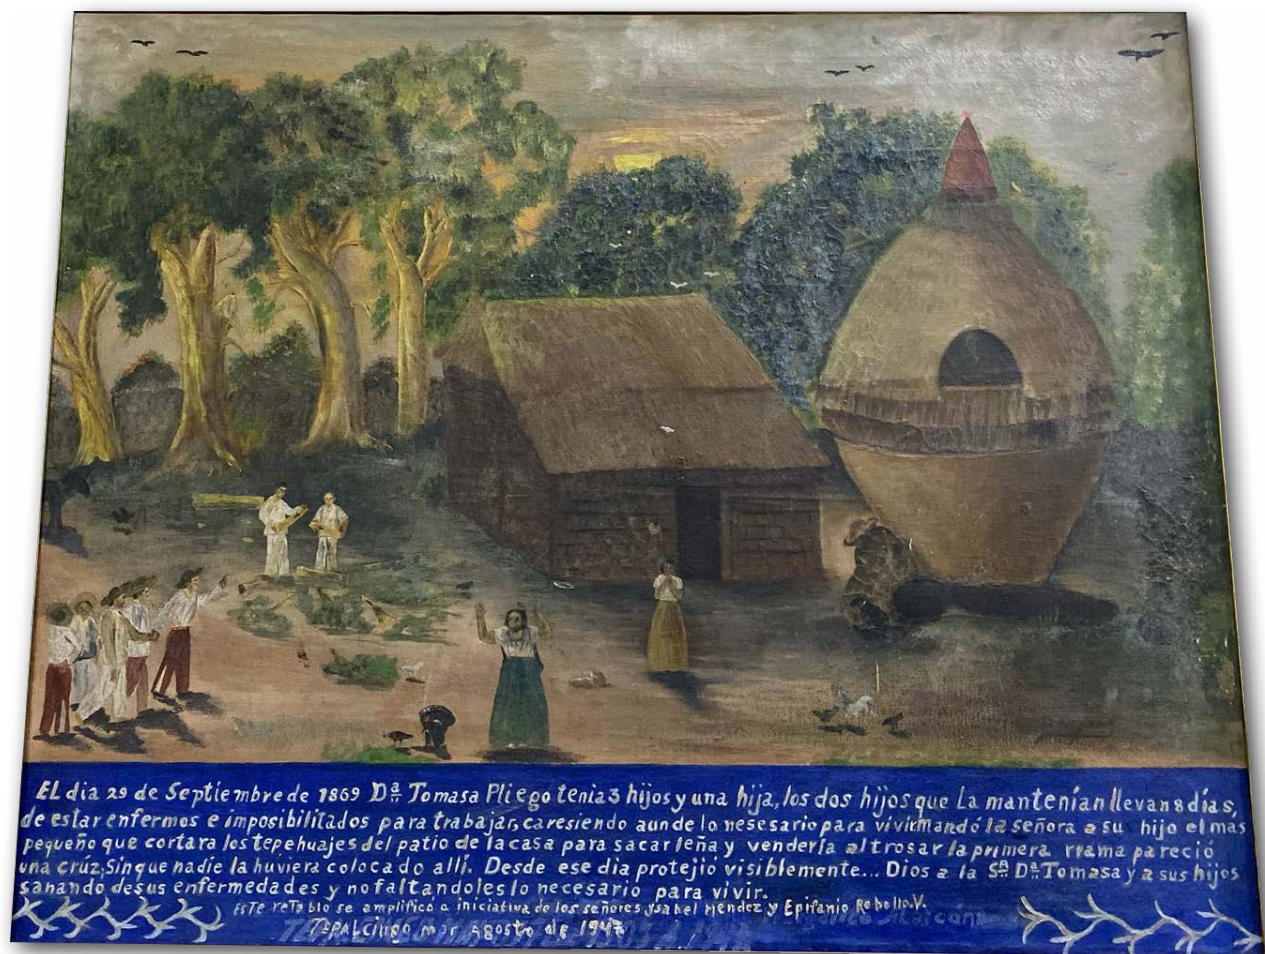 EL dia 29 de Septiembre de 1869 Dª Tomasa Pliego tenia 3 hijos y una hija, los dos hijos que La mantenían llevan 8 días,
de estar enfermos e imposibilitados para trabajar, caresiendo aun de lo nesesario para vivir mandó la señora a su hijo el mas
pequeño que cortara los tepehuajes del patio de la casa para sacar leña y venderla al trosar la primera rrama pareció
una crúz, Sin que nadie la huviera colocado allí. Desde ese dia protejió visiblemente... Dios a la Sª Dª Tomasa y a sus hijos
sanando de sus enfermedades y no faltandoles lo necesario para vivir.
ESTE reTablo se amplificó a iniciativa de los señores Ysabel Mendez y Epifanio Rebollo V.
TepalCingo mor agosto de 1947